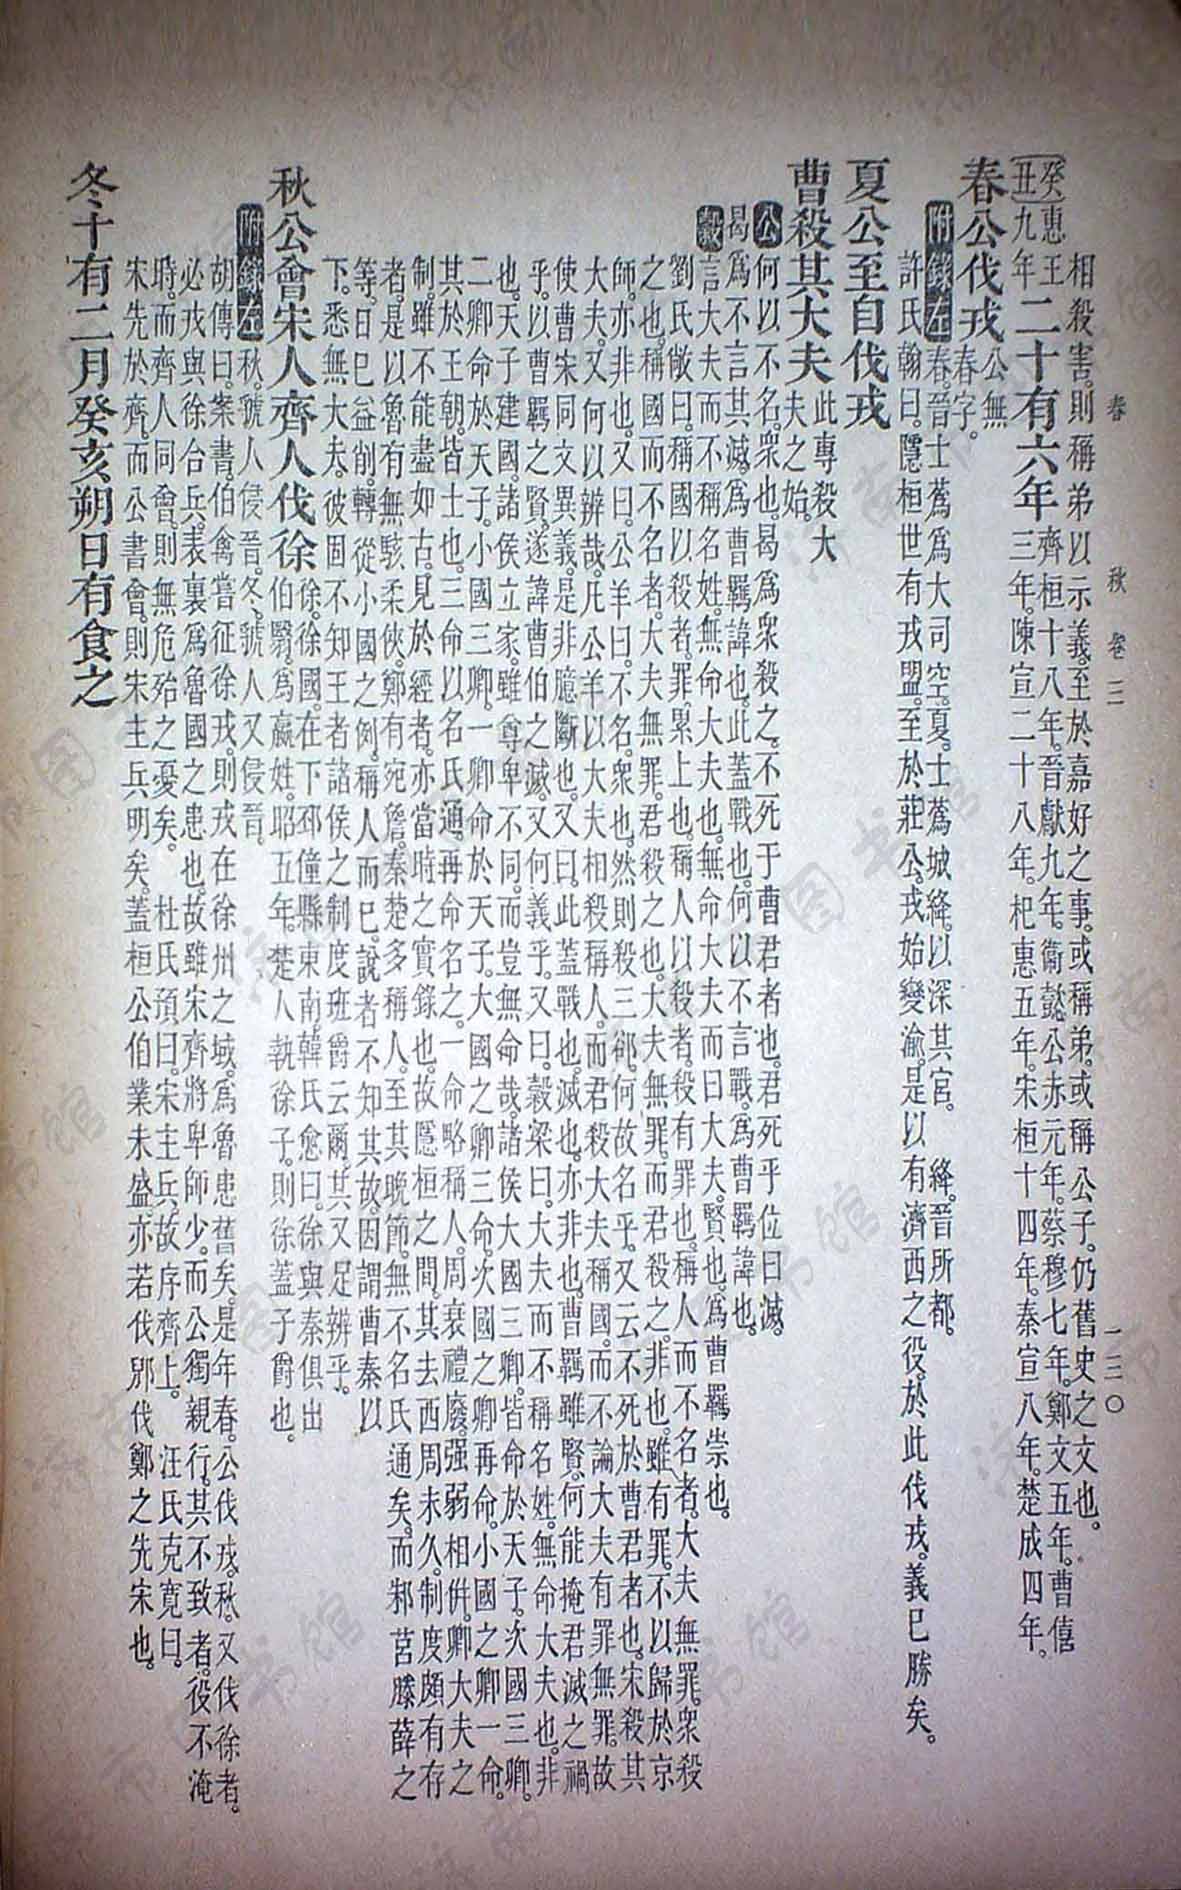 春　秋　卷三　一三〇
相殺害。則稱弟以示義。至於嘉好之事。或稱弟。或稱公子。仍舊史之文也。
癸丑
惠王九年
二十有六年
齊桓十八年。晉獻九年。衞懿公赤元年。蔡穆七年。鄭文五年。曹僖
三年。陳宣二十八年。杞惠五年。宋桓十四年。秦宣八年。楚成四年。
春公伐戎
公無
春字。
附錄左
春。晉士蔿爲大司空。夏。士蔿城絳。以深其宮。　絳。晉所都。
許氏翰曰。隱桓世有戎盟。至於莊公。戎始變渝。是以有濟西之役。於此伐戎。義已勝矣。
夏公至自伐戎
曹殺其大夫
此專殺大
夫之始。
公
何以不名。衆也。曷爲衆殺之。不死于曹君者也。君死乎位曰滅。
曷爲不言其滅。爲曹羈諱也。此蓋戰也。何以不言戰。爲曹羈諱也。
穀
言大夫而不稱名姓。無命大夫也。無命大夫而曰大夫。賢也。爲曹羈崇也。
劉氏敞曰。稱國以殺者。罪累上也。稱人以殺者。殺有罪也。稱人而不名者。大夫無罪。衆殺
之也。稱國而不名者。大夫無罪。君殺之也。大夫無罪。而君殺之。非也。雖有罪。不以歸於京
師。亦非也。又曰。公羊曰。不名。衆也。然則殺三郤。何故名乎。又云不死於曹君者也。宋殺其
大夫。又何以辨哉。凡公羊以大夫相殺稱人。而君殺大夫稱國。而不論大夫有罪無罪。故
使曹宋同文異義。是非臆斷也。又曰。此蓋戰也。滅也。亦非也。曹羈雖賢。何能掩君滅之禍
乎。以曹羈之賢。遂諱曹伯之滅。又何義乎。又曰。穀梁曰。大夫而不稱名姓。無命大夫也。非
也。天子建國。諸侯立家。雖尊卑不同。而豈無命哉。諸侯大國三卿。皆命於天子。次國三卿。
二卿命於天子。小國三卿。一卿命於天子。大國之卿三命。次國之卿再命。小國之卿一命。
其於王朝。皆士也。三命以名氏通。再命名之。一命略稱人。周衰禮廢。强弱相倂。卿大夫之
制。雖不能盡如古。見於經者。亦當時之實錄也。故隱桓之間。其去西周未久。制度頗有存
者。是以魯有無駭柔俠。鄭有宛詹。秦楚多稱人。至其晚節。無不名氏通矣。而邾莒滕薛之
等。日已益削。轉從小國之例。稱人而已。說者不知其故。因謂曹秦以
下。悉無大夫。彼固不知王者諸侯之制度班爵云爾。其又足辨乎。
秋公會宋人齊人伐徐
徐。徐國。在下邳僮縣東南。韓氏愈曰。徐與秦俱出
伯翳。爲嬴姓。昭五年。楚人執徐子。則徐蓋子爵也。
附錄左
秋。虢人侵晉。冬。虢人又侵晉。
胡傳曰。案書伯禽嘗征徐戎。則戎在徐州之域。爲魯患舊矣。是年春。公伐戎。秋。又伐徐者。
必戎與徐合兵。表裏爲魯國之患也。故雖宋齊將卑師少。而公獨親行。其不致者。役不淹
時。而齊人同會。則無危殆之憂矣。　杜氏預曰。宋主兵。故序齊上。　汪氏克寬曰。
宋先於齊。而公書會。則宋主兵明矣。蓋桓公伯業未盛。亦若伐郳伐鄭之先宋也。
冬十有二月癸亥朔日有食之